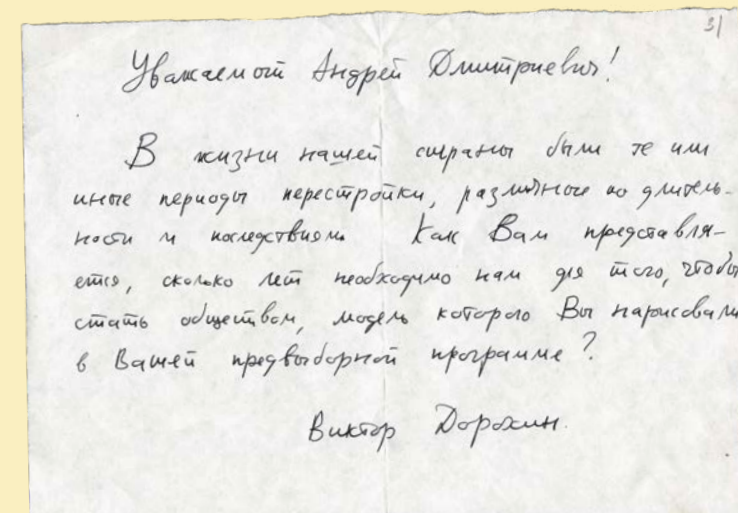 31
Уважаемый Андрей Дмитриевич!
В жизни нашей страны были те или
иные периоды перестройки, различные по длитель-
ности и последствиям. Как Вам представля-
ется, сколько лет необходимо нам для того, чтобы
стать обществом, модель которого Вы нарисовали
в Вашей предвыборной программе?
Виктор Дорохин.